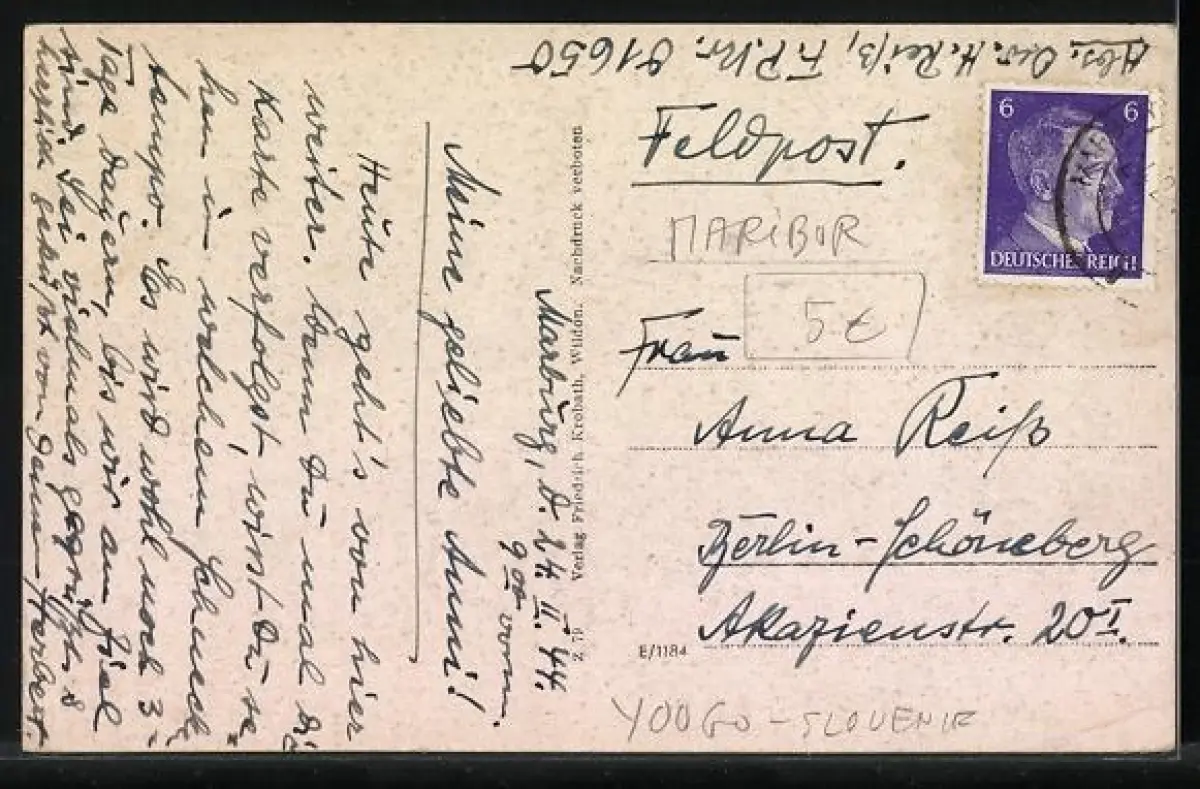 Abs. H. Reiß, F.P.Nr. 01650
Feldpost.
6 6
DEUTSCHES REICH
MARIBOR
5 €
Frau
Anna Reiß
Berlin-Schöneberg
Akazienstr. 20 I.
E/1184
YOUGO-SLOVENIE
Z 79 Verlag Friedrich Krobath, Wildon. Nachdruck verboten
Marburg, d. 24. II. 44.
9 00 vorm.
Meine geliebte Anni!
Heute geht's von hier
weiter. Wenn Du mal die
Karte verfolgst, wirst Du se=
hen in welchem Schneck=
tempo. Es wird wohl noch 3
Tage dauern, bis wir am Ziel
sind. Sei vielmals gegrüßt &
herzlich geküßt von Deinem Herbert.